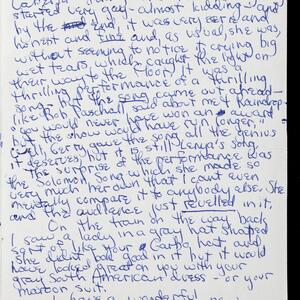 started very gay, almost kidding - and
by the end it was very serene and
honest and fine and, as usual, she was,
without seeming to notice it, crying big
wet tears which caught the light on
their way to the floor. It was a
thrilling performance of a thrilling
song. But the song came out already -
like Bob Jackson said about me & Raindrop -
"you would never have won an award
but the show would have run longer."
Well, Gerry gave the song all the genius
it deserves, but it's still Lenya's song.
The surprise of the performance was
the Solomon song which she made so
very much her own that I can't even
mentally compare it to anybody else. She
and the audience just revelled in it.
On the train on the way back
I saw a lady in a gray hat shaped
sort of like your Garbo hat, and
she didn't look good in it but it would
have looked great on you with your
gray South American dress - or your
maroon suit.
I have a wonderful